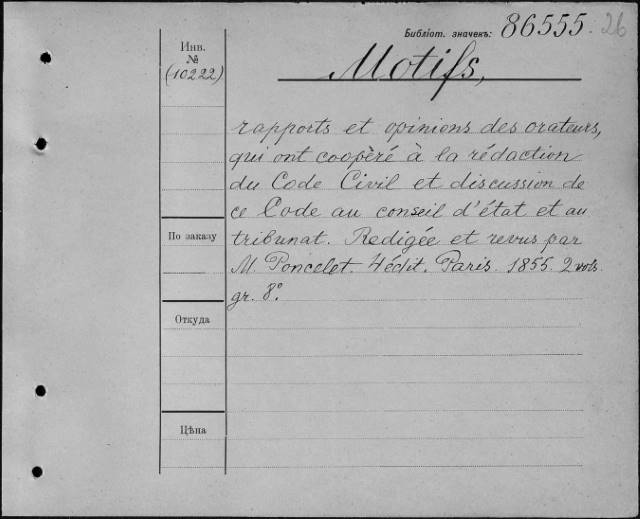 Библіот. значекъ: 86555. 26
Инв.
№
(10222)
Motifs,
rapports et opinions des orateurs,
qui ont coopèré à la rédaction
du Code Civil et discussion de
ce Code au conseil d'état et au
tribunat. Redigée et revus par
M. Poncelet. 4 édit. Paris. 1855. 2 vols.
gr. 8º.
По заказу
Откуда
Цѣна